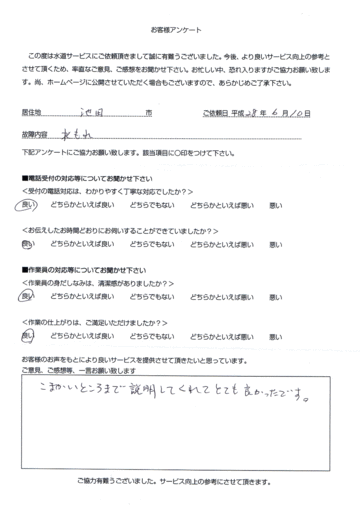 お客様アンケート
この度は水道サービスにご依頼頂きまして誠に有難うございました。今後、より良いサービス向上の参考と
させて頂くため、率直なご意見、ご感想をお聞かせ下さい。お忙しい中、恐れ入りますがご協力お願い致しま
す。尚、ホームページに公開させていただく場合もございますので、あらかじめご了承下さい。
居住地 池田 市 ご依頼日 平成 28 年 6 月 10 日
故障内容 水もれ
下記アンケートにご協力お願い致します。該当項目に〇印をつけて下さい。
■電話受付の対応等についてお聞かせ下さい
<受付の電話対応は、わかりやすく丁寧な対応でしたか?>
良い どちらかといえば良い どちらでもない どちらかといえば悪い 悪い
<お伝えしたお時間どおりにお伺いすることができていましたか?>
良い どちらかといえば良い どちらでもない どちらかといえば悪い 悪い
■作業員の対応等についてお聞かせ下さい
<作業員の身だしなみは、清潔感がありましたか?>
良い どちらかといえば良い どちらでもない どちらかといえば悪い 悪い
<作業の仕上がりは、ご満足いただけましたか?>
良い どちらかといえば良い どちらでもない どちらかといえば悪い 悪い
お客様のお声をもとにより良いサービスを提供させて頂きたいと思っています。
ご意見、ご感想等、一言お願い致します
こまかいところまで説明してくれてとても良かったです。
ご協力有難うございました。サービス向上の参考にさせて頂きます。